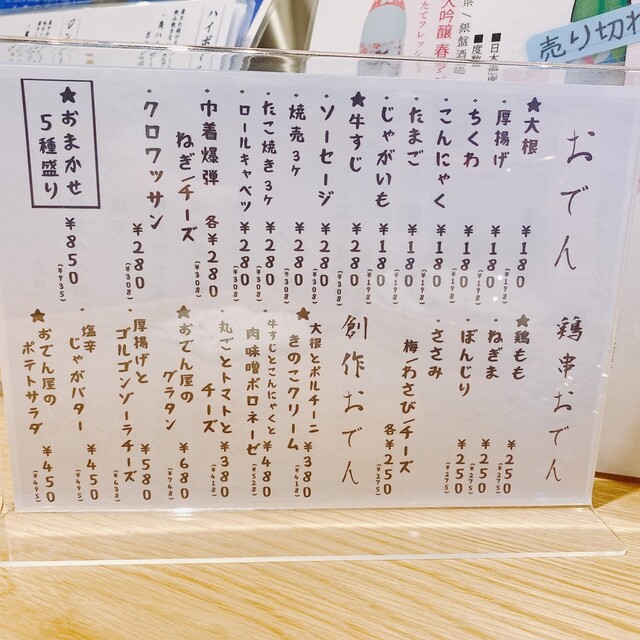 おでん
★大根 ¥180 (¥198)
・厚揚げ ¥180 (¥198)
・ちくわ ¥180 (¥198)
・こんにゃく ¥180 (¥198)
・たまご ¥180 (¥198)
・じゃがいも ¥180 (¥198)
★牛すじ ¥280 (¥308)
・ソーセージ ¥280 (¥308)
・焼売3ケ ¥280 (¥308)
・たこ焼き3ケ ¥280 (¥308)
・ロールキャベツ ¥280 (¥308)
・巾着爆弾
ねぎ/チーズ 各¥280 (¥308)
・クロワッサン ¥280 (¥308)
★おまかせ
5種盛り ¥850 (¥935)
鶏串おでん
★鶏もも ¥250 (¥275)
・ねぎま ¥250 (¥275)
・ぼんじり ¥250 (¥275)
・ささみ
梅/わさび/チーズ 各¥250 (¥275)
創作おでん
★大根とポルチーニ
きのこクリーム ¥380 (¥418)
・牛すじとこんにゃくと
肉味噌ボロネーゼ ¥480 (¥528)
・丸ごとトマトと
チーズ ¥380 (¥418)
★おでん屋の
グラタン ¥680 (¥748)
・厚揚げと
ゴルゴンゾーラチーズ ¥580 (¥638)
・塩辛
じゃがバター ¥450 (¥495)
★おでん屋の
ポテトサラダ ¥450 (¥495)
売り切れ
ハイボ
■日本酒度
■度数
茶/銀盤酒造
大吟醸 春